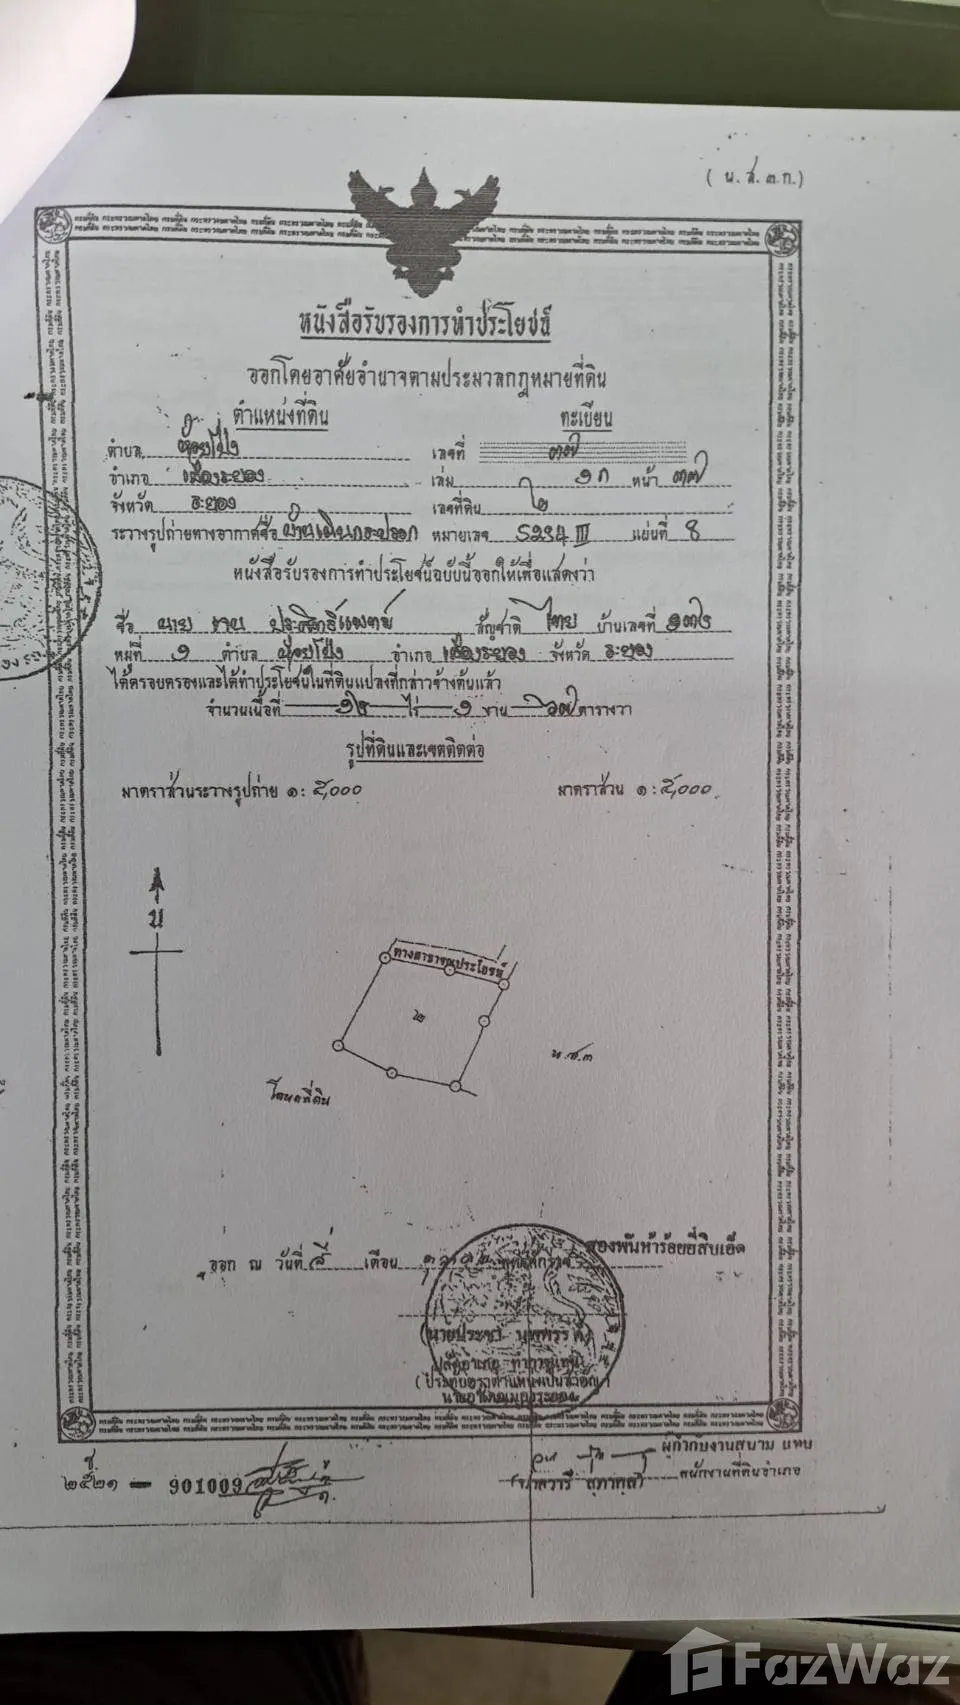 ( น.ส.๓ก.)
หนังสือรับรองการทำประโยชน์
ออกโดยอาศัยอำนาจตามประมวลกฎหมายที่ดิน
ตำแหน่งที่ดิน ทะเบียน
ตำบล ห้วยโป่ง เลขที่ ๓๗
อำเภอ เมืองระยอง เล่ม ๑ก หน้า ๓๗
จังหวัด ระยอง เลขที่ดิน ๒
ระวางรูปถ่ายทางอากาศชื่อ บ้านเนินกระปรอก หมายเลข 5234 III แผ่นที่ 8
หนังสือรับรองการทำประโยชน์ฉบับนี้ออกให้เพื่อแสดงว่า
ชื่อ นาย ประสิทธิ์แพทย์ สัญชาติ ไทย บ้านเลขที่
หมู่ที่ ๑ ตำบล ห้วยโป่ง อำเภอ เมืองระยอง จังหวัด ระยอง
ได้ครอบครองและได้ทำประโยชน์ในที่ดินแปลงที่กล่าวข้างต้นแล้ว
จำนวนเนื้อที่ ๑๒ ไร่ ๑ งาน ๖๗ ตารางวา
รูปที่ดินและเขตติดต่อ
มาตราส่วนระวางรูปถ่าย ๑:๕,๐๐๐ มาตราส่วน ๑:๕,๐๐๐
น
ทางสาธารณประโยชน์
๒
น.ส.๓
โฉนดที่ดิน
สองพันห้าร้อยยี่สิบเอ็ด
ออก ณ วันที่ สี่ เดือน พุทธศักราช
ปลัดอำเภอ ทำการแทน
นายอำเภอเมืองระยอง
ผู้กำกับงานสนาม แทน
พนักงานที่ดินอำเภอ
๒๕๒๑ — 901009
FazWaz